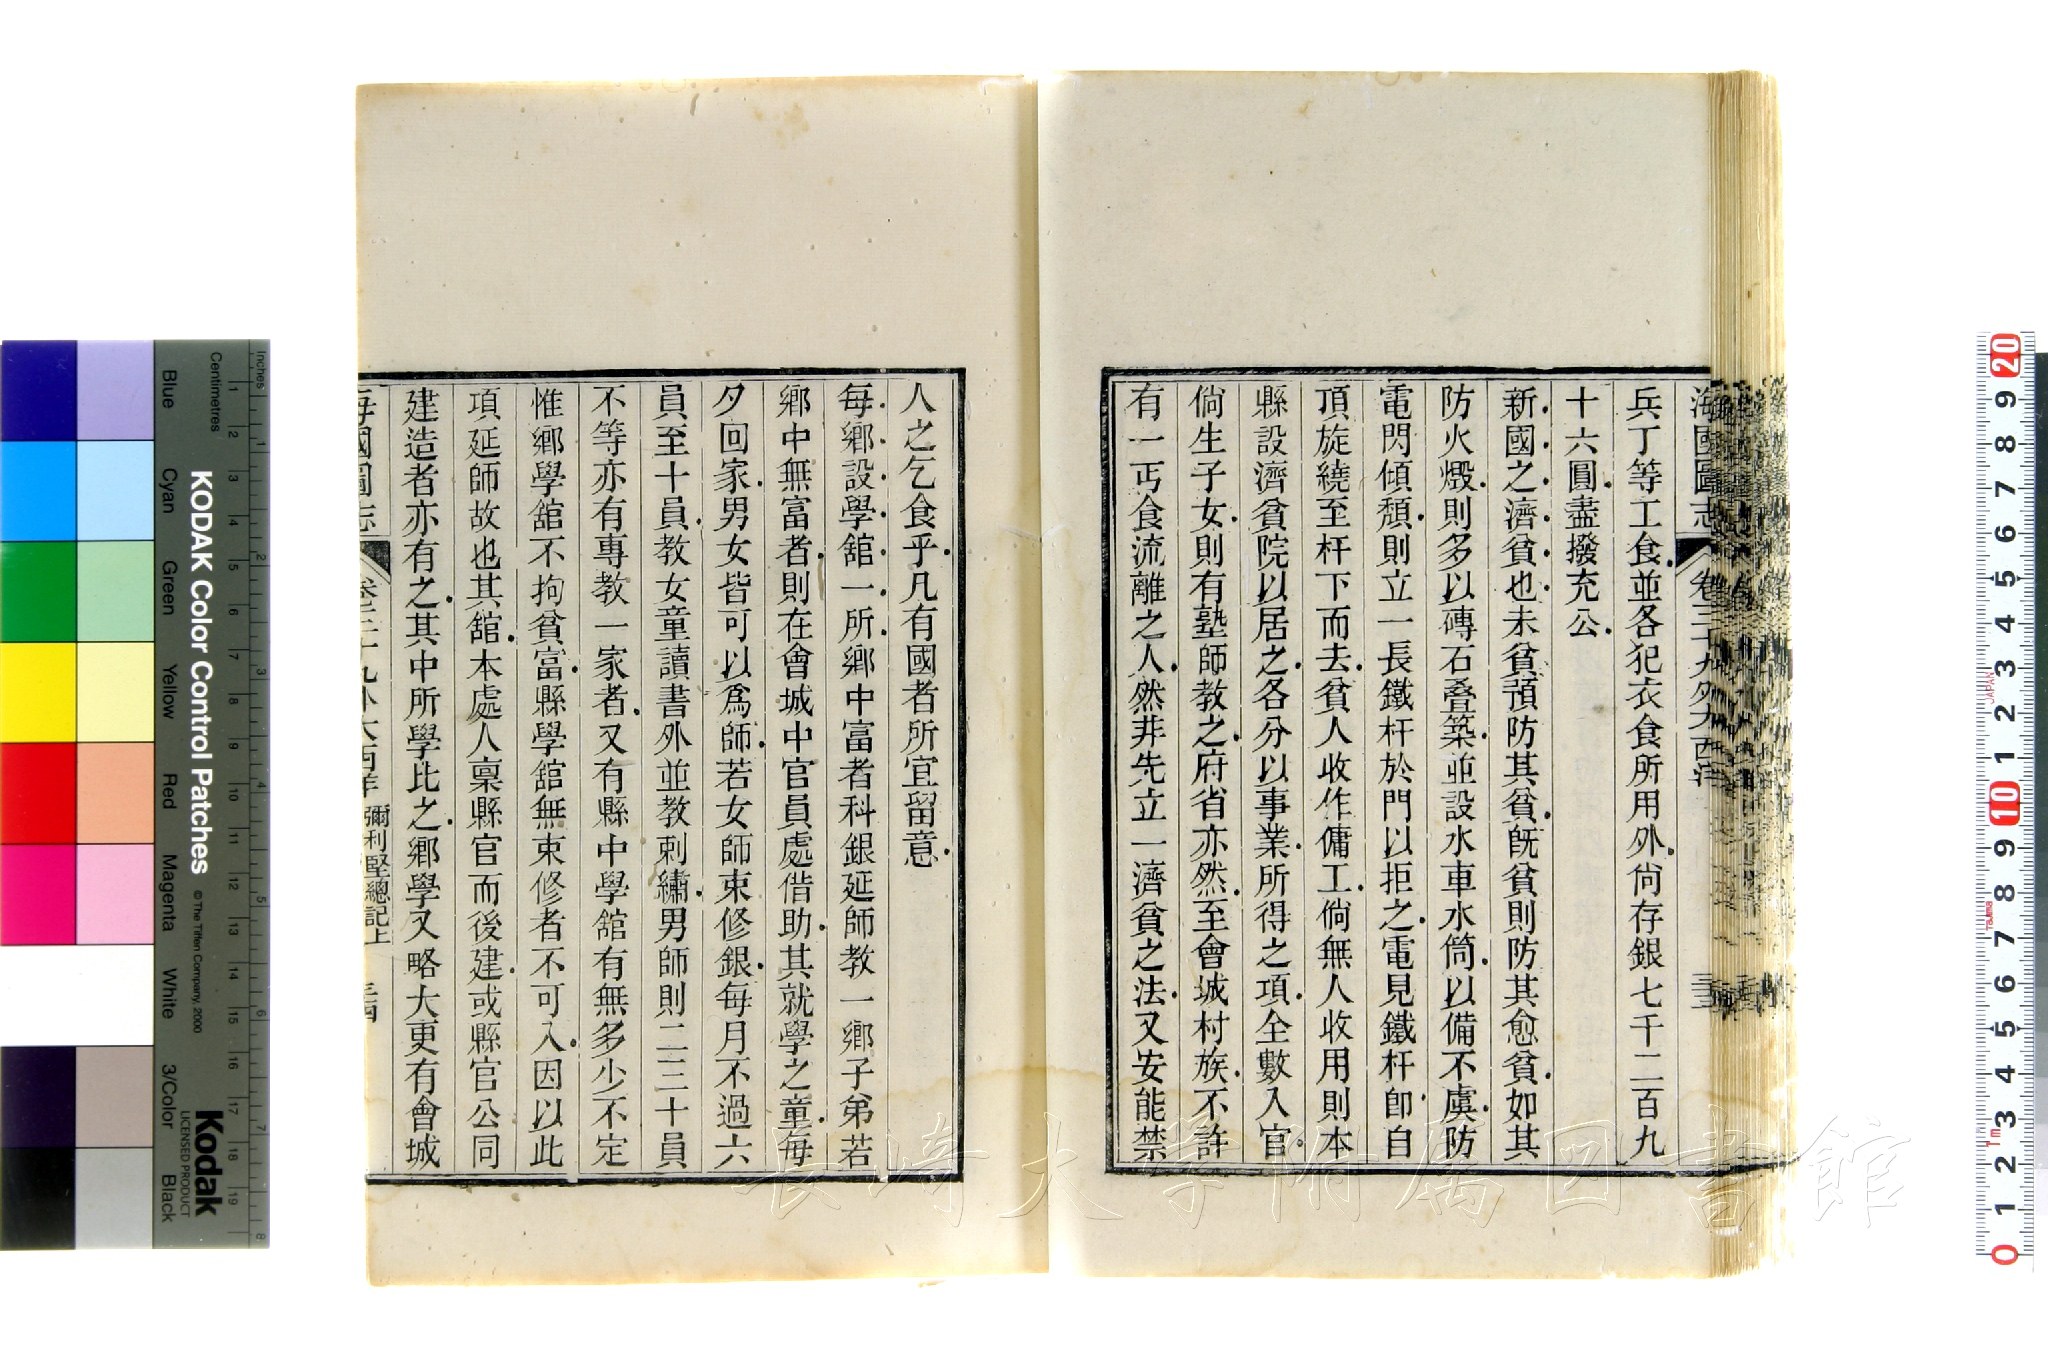 海國圖志 卷三十九外大西洋 三三
兵丁等工食並各犯衣食所用外尙存銀七千二百九
十六圓盡撥充公
新國之濟貧也未貧預防其貧旣貧則防其愈貧如其
防火燬則多以磚石叠築並設水車水筒以備不虞防
電閃傾頹則立一長鐵杆於門以拒之電見鐵杆卽自
頂旋繞至杆下而去貧人收作傭工倘無人收用則本
縣設濟貧院以居之各分以事業所得之項全數入官
倘生子女則有塾師教之府省亦然至會城村族不許
有一丐食流離之人然非先立一濟貧之法又安能禁
人之乞食乎凡有國者所宜留意
每鄉設學舘一所鄉中富者科銀延師教一鄉子弟若
鄉中無富者則在會城中官員處借助其就學之童每
夕回家男女皆可以爲師若女師束修銀每月不過六
員至十員教女童讀書外並教刺繡男師則二三十員
不等亦有專教一家者又有縣中學舘有無多少不定
惟鄉學舘不拘貧富縣學舘無束修者不可入因以此
項延師故也其舘本處人稟縣官而後建或縣官公同
建造者亦有之其中所學比之鄉學又略大更有會城
海國圖志 卷三十九外大西洋 彌利堅總記上 三四
Inches
Centimetres
KODAK Color Control Patches
© The Tiffen Company, 2000
Kodak
LICENSED PRODUCT
Blue
Cyan
Green
Yellow
Red
Magenta
White
3/Color
Black
1 2 3 4 5 6 7 8 9 10 11 12 13 14 15 16 17 18 19
1 2 3 4 5 6 7 8
20 9 8 7 6 5 4 3 2 1 10 9 8 7 6 5 4 3 2 1 0
JAPAN
長崎大学附属図書館